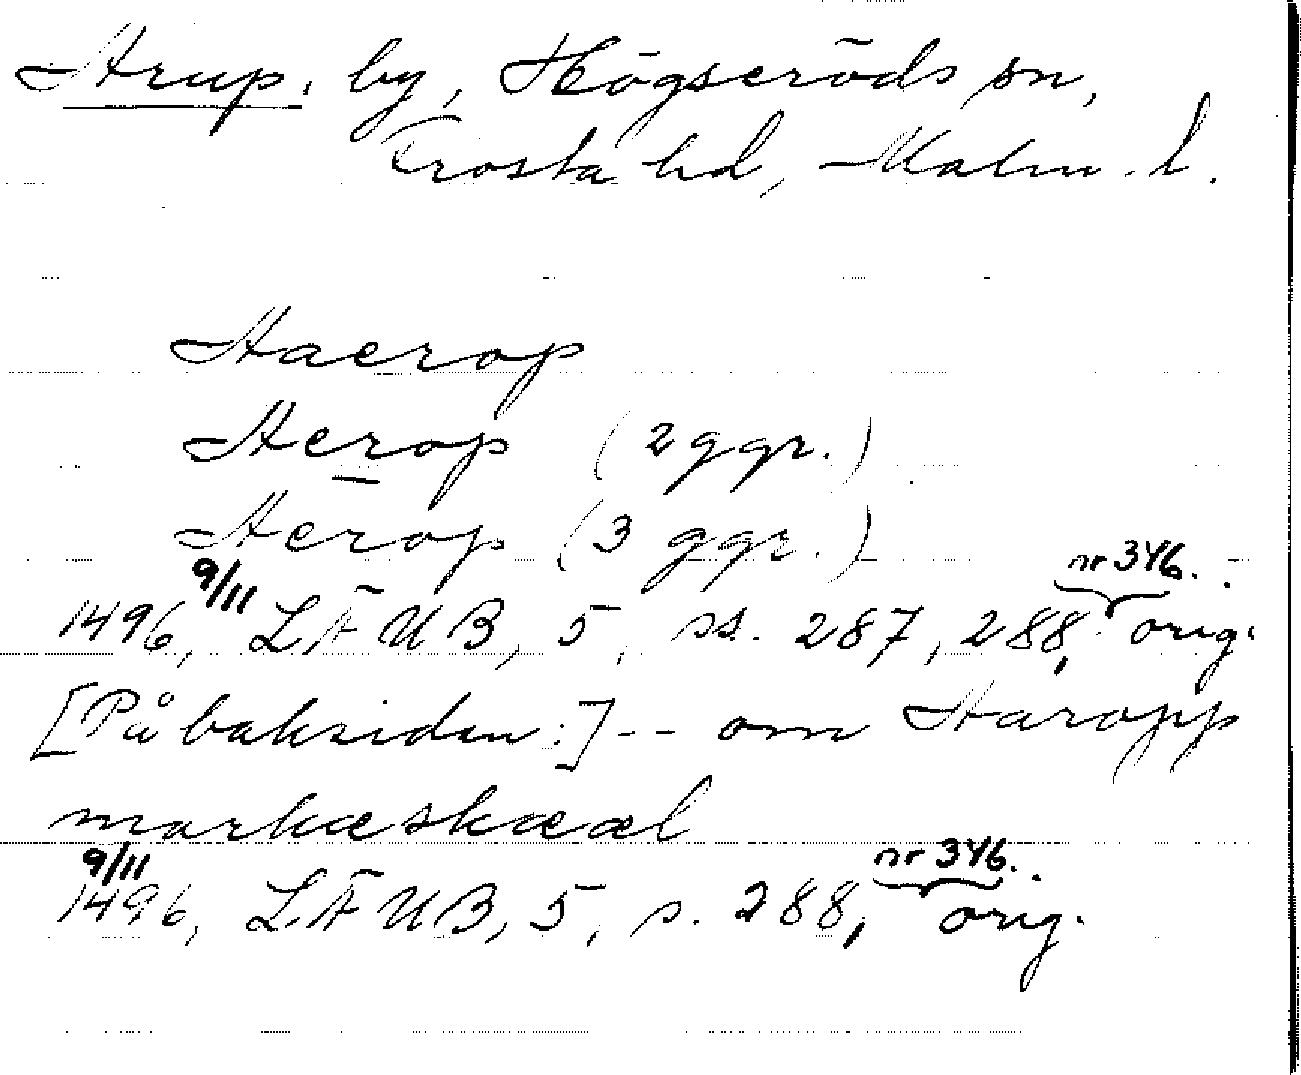 Arup, by, Högseröds sn,
Frosta hd, Malm. l.
Aaerop
Aerop (2 ggr.)
Aerop (3 ggr.)
9/11 nr 346.
1496, LÄUB, 5, ss. 287, 288, orig.
[På baksidan:] -- om Aaropp
markæskææl
9/11 nr 346.
1496, LÄUB, 5, s. 288, orig.